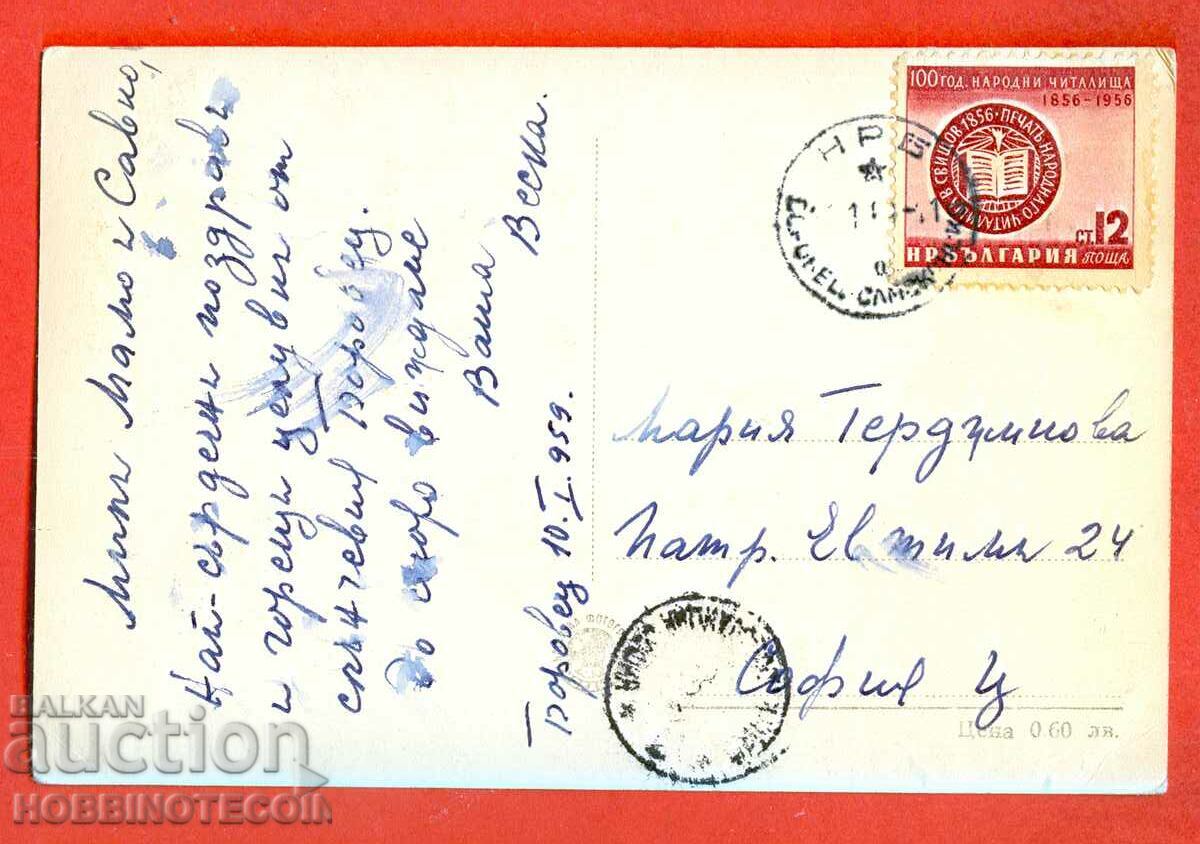 Мили Мамо и Савно,
Най-сърдечни поздрави
и горещи целувки от
слънчевия Боровец.
До скоро виждане
Ваша Веска.
Боровец 10.I.959.
100 ГОД. НАРОДНИ ЧИТАЛИЩА
1856-1956
СВИЩОВ 1856 • ПЕЧАТЬ НАРОДНАГО ЧИТАЛИЩА В
СТ. 12
НР БЪЛГАРИЯ ПОЩА
НРБ
Мария Терджуманова
Патр. Евтимий 24
София Ц
Цена 0.60 лв.
BALKAN
auction
HOBBINOTECOIN